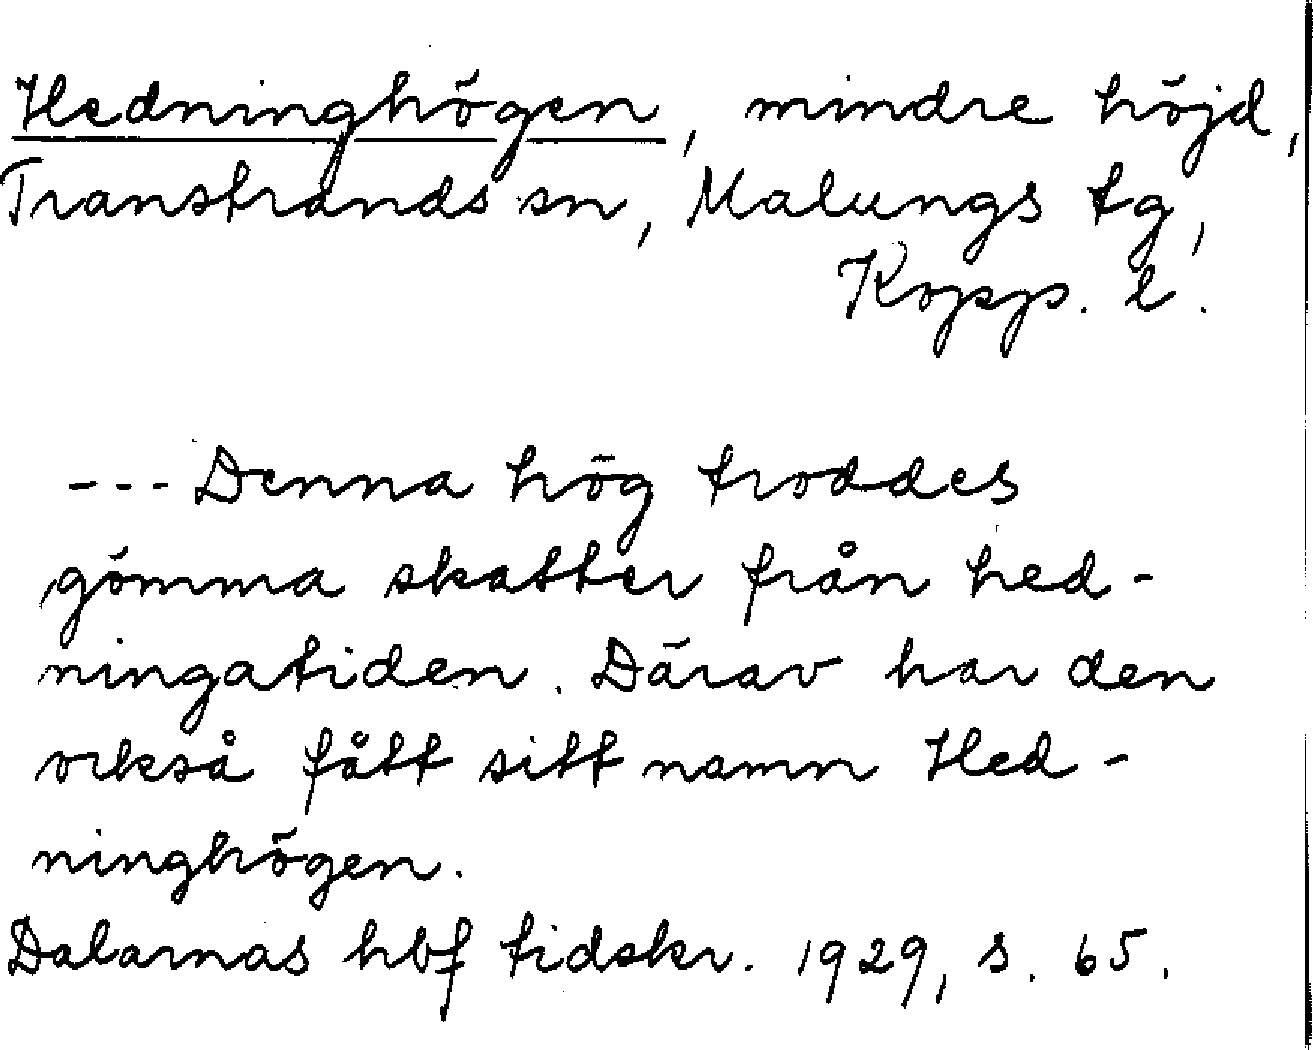 Hedninghögen, mindre höjd,
Transtrands sn, Malungs tg,
Kopp. l.
--- Denna hög troddes
gömma skatter från hed-
ningatiden. Därav har den
också fått sitt namn Hed-
ninghögen.
Dalarnas hbf tidskr. 1929, s. 65.